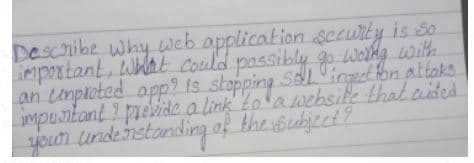 Describe why web application secwity is so
important, What could possibly go worng with
an unproted app? Is stopping SQL inject ion attaks
impourtant? previde a link to a website that aided
your understanding of the subject?